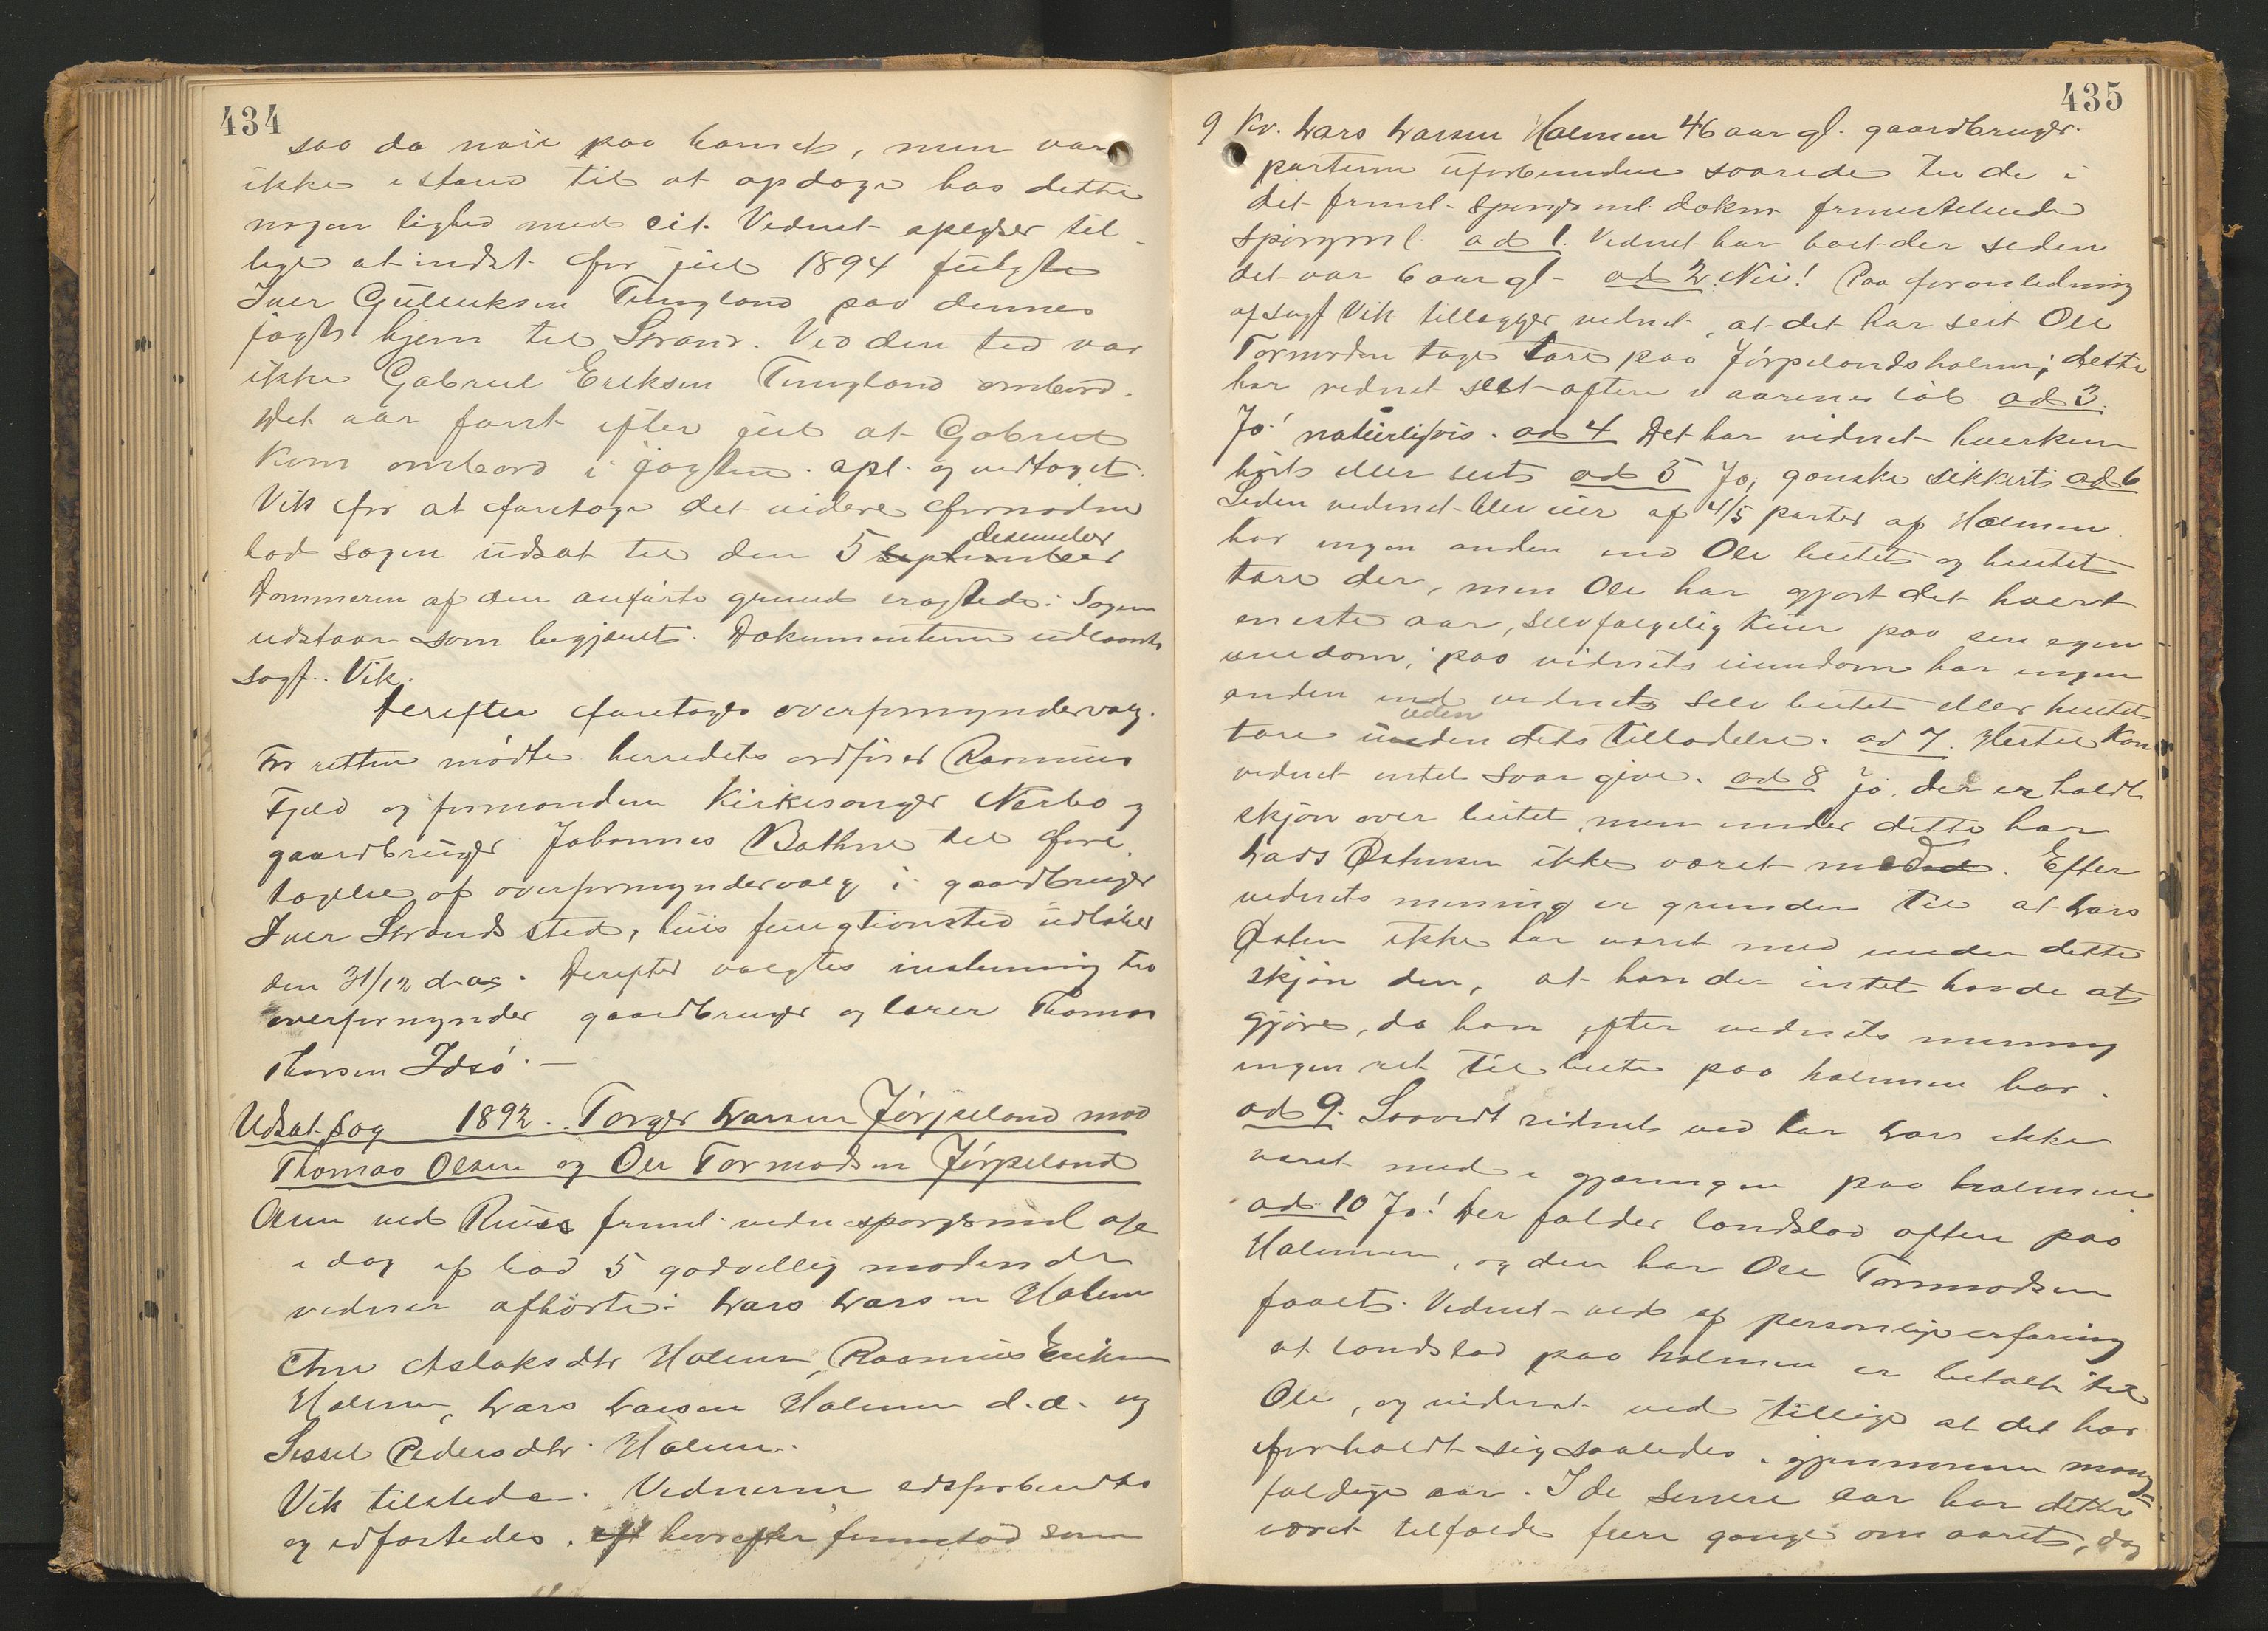 434
saa da nøie paa barnet, men var
ikke istand til at opdage hos dette
nogen lighed med cit. Vidnet oplyser til-
lige at indst. før jul 1894 fulgte
Iver Gulleiksen Tungland paa dennes
jagt hjem til Strand. Ved den tid var
ikke Gabriel Eriksen Tungland ombord.
Det var først efter jul at Gabriel
kom ombord i jagten. Opl. og vedtaget.
Vik for at foretage det videre fornødne
bad sagen udsat til den 5 september desember
Dommeren af den anførte grund eragtede: Sagen
udstaar som begjæret. Dokumenterne udlaantes
sagf. Vik.
Derefter foretoges overformyndervalg.
For retten mødte herredets ordfører Rasmus
Fjeld og formanden Kirkesanger Nerbø og
gaardbruger Johannes Bathne til fore-
tagelse af overformyndervalg i gaardbruger
Iver Strands sted, hvis fungtionstid udløber
den 31/12 d.a. Derefter valgtes instemmig til
overformynder gaardbruger og lærer Thomas
Thorsen Idsø. —
Udsat sag 1892. Torger Larsen Jørpeland mod
Thomas Olsen og Ole Tormodsen Jørpeland
Ann ved Riise freml. vidnespørgsmål afs
i dag af bad 5 godvillig mødende
vidner afhørte: Lars Larsen Holmen
Ane Aslaksdtr Holmen, Rasmus Eriksen
Holmen, Lars Larsen Holmen d.æ. og
Sissel Pedersdtr. Holmen.
Vik tilstede. Vidnerne edsforbundtes
og edfæstedes. eft hvorefter fremstod som
435
9 Kv. Lars Larsen Holmen 46 aar gl. gaardbruger.
parterne uforbunden svarede til de i
det freml. spørgsml. dokm. fremstillede
spørgsml. ad 1. Vidnet har boet der siden
det var 6 aar gl. ad 2. Nei! Paa foranledning
af sagf Vik tillægger vidnet, at det har seit Ole
Tormodsen tage tare paa Jørpelandsholmen; dette
har vidnet seet oftere i aarenes løb ad 3.
Jo! naturligvis. ad 4 Det har vidnet hverken
hørt eller seet ad 5 Jo, ganske sikkert ad 6
Siden vidnet blev eier af 4/5 parter af Holmen
har ingen anden end Ole beitet og hentet
tare der, men Ole har gjort det hvert
eneste aar, selvfølgelig kun paa sin egen
eiendom; paa vidnets eiendom har ingen
anden end vidnet selv beitet eller hentet
tare uden uden dets tilladelse. ad 7. Hertil kan
vidnet intet svar give. ad 8 Jo, der er holdt
skjøn over beitet, men under dette har
Lars Østensen ikke været med. Efter
vidnets mening er grunden til at Lars
Østen ikke har været med under dette
skjøn den, at han der intet havde at
gjøre, da han efter vidnets mening
ingen ret til beite paa holmen har.
ad 9. Saavidt vidnet ved har Lars ikke
været med i gjæringen paa holmen
ad 10 Jo! Der falder landslod oftere paa
Holmen, og den har Ole Tormodsen
faaet. Vidnet ved af personlig erfaring
at landslod paa holmen er betalt til
Ole, og vidnet ved tillige at det har
forholdt sig saaledes igjennem mang-
foldige aar. I de senere aar har dette
været tilfælde flere gange om aaret, dog